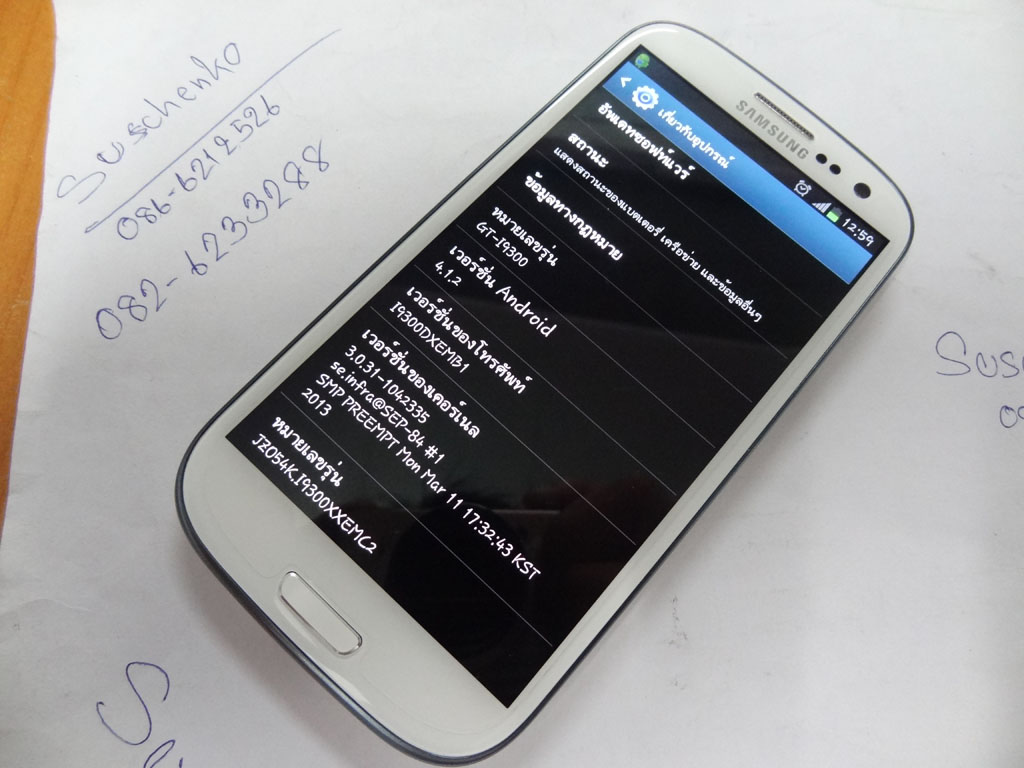 Suschenko
086-6212526
082-6233288
SAMSUNG
12:59
เกี่ยวกับอุปกรณ์
อัพเดทซอฟท์แวร์
สถานะ
แสดงสถานะของแบตเตอรี่ เครือข่าย และข้อมูลอื่นๆ
ข้อมูลทางกฎหมาย
หมายเลขรุ่น
GT-I9300
เวอร์ชั่น Android
4.1.2
เวอร์ชั่นของโทรศัพท์
I9300DXEMB1
เวอร์ชั่นของเคอร์เนล
3.0.31-1042335
se.infra@SEP-84 #1
SMP PREEMPT Mon Mar 11 17:32:43 KST
2013
หมายเลขรุ่น
JZO54K.I9300XXEMC2